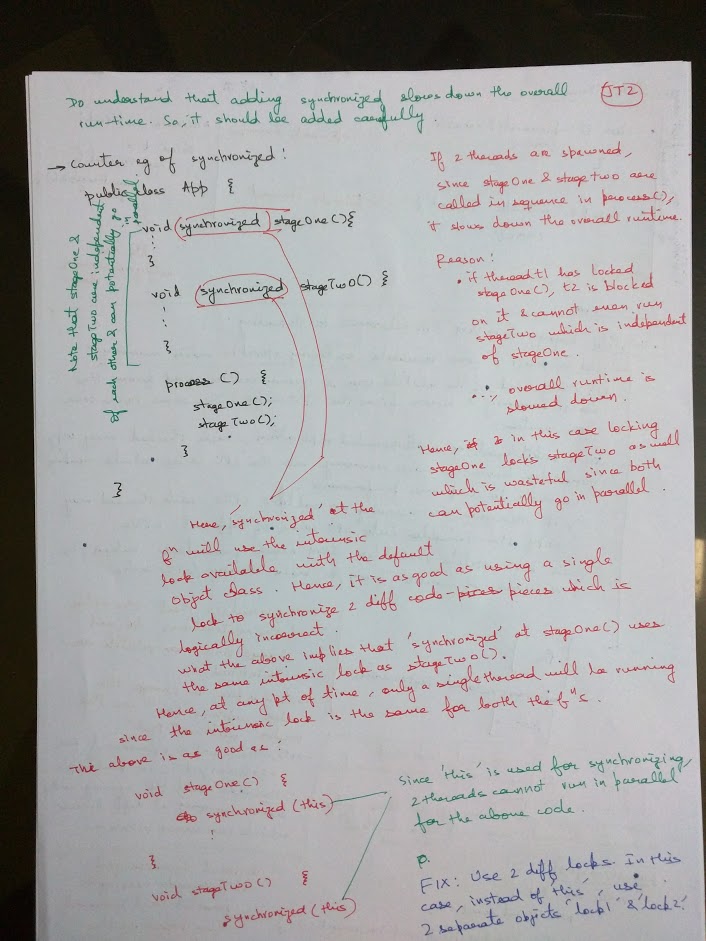 Do understand that adding synchronized slows down the overall
run-time. So, it should be added carefully.
JT2
→ Counter eg of synchronized:
public class App {
void synchronized stageOne(){
:
:
}
void synchronized stageTwo() {
:
:
}
process () {
stageOne();
stageTwo();
}
}
Note that stageOne &
stageTwo are independent
of each other & can potentially go in
parallel.
If 2 threads are spawned,
since stageOne & stageTwo are
called in sequence in process(),
it slows down the overall runtime.
Reason:
• if thread t1 has locked
stageOne(), t2 is blocked
on it & cannot even run
stageTwo which is independent
of stageOne.
∴, overall runtime is
slowed down.
Hence, in this case locking
stageOne locks stageTwo as well
which is wasteful since both
can potentially go in parallel.
Here, 'synchronized' at the
fⁿ will use the intrinsic
lock available with the default
object class. Hence, it is as good as using a single
lock to synchronize 2 diff code pieces which is
logically incorrect.
what the above implies that 'synchronized' at stageOne() uses
the same intrinsic lock as stageTwo().
Hence, at any pt of time, only a single thread will be running
since the intrinsic lock is the same for both the fⁿs.
The above is as good as:
void stageOne() {
synchronized (this)
:
}
void stageTwo() {
synchronized (this)
Since 'this' is used for synchronizing,
2 threads cannot run in parallel
for the above code.
FIX: Use 2 diff locks. In this
case, instead of 'this', use
2 separate objects 'lock1' & 'lock2'.